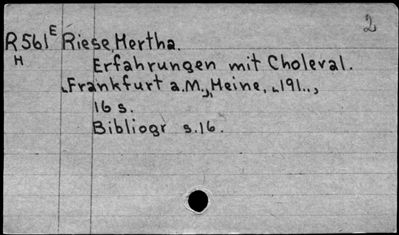 2
R561E Riese, Hertha.
H
Erfahrungen mit Choleval.
Frankfurt a.M., Heine, 191..,
16 s.
Bibliogr s.16.